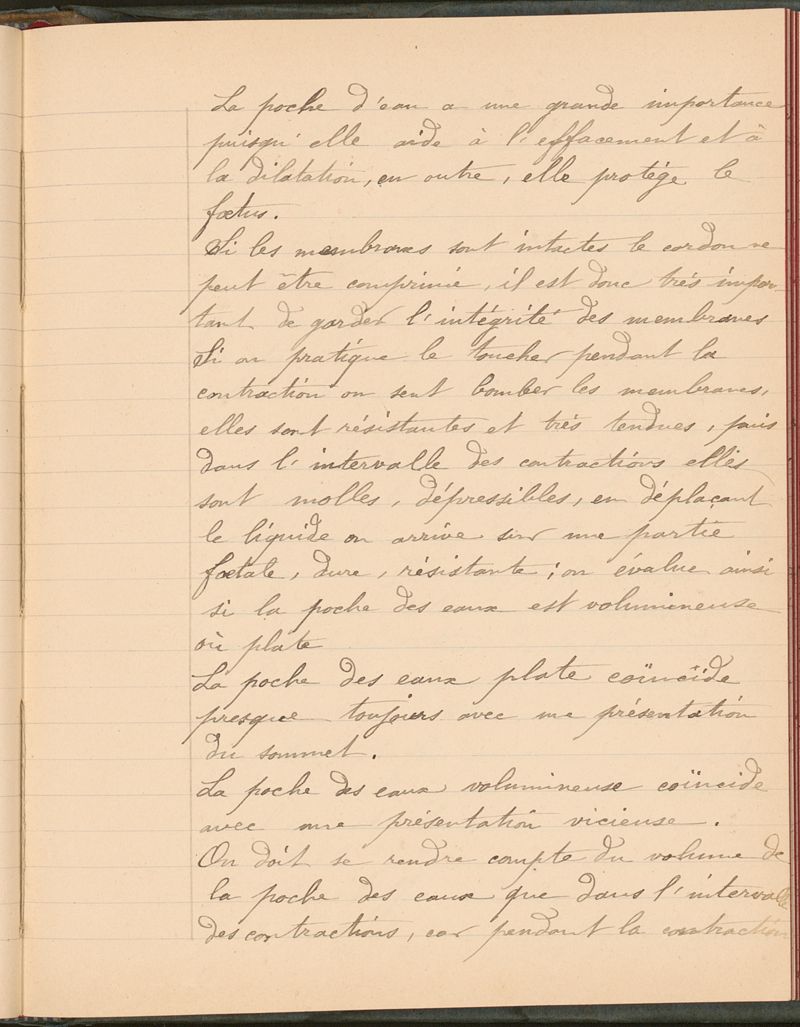 La poche d'eau a une grande importance
puisqu'elle aide à l'effacement et à
la dilatation, en outre, elle protége le
fœtus.
Si les membranes sont intactes le cordon ne
peut être comprimé, il est donc trés impor-
tant de garder l'intégrité des membranes
Si on pratique le toucher pendant la
contraction on sent bomber les membranes,
elles sont résistantes et trés tendues, puis
dans l'intervalle des contractions elles
sont molles, dépressibles, en déplaçant
le liquide on arrive sur une partie
fœtale, dure, résistante; on évalue ainsi
si la poche des eaux est volumineuse
où plate
La poche des eaux plate coïncide
presque toujours avec une présentation
du sommet.
La poche des eaux volumineuse coïncide
avec une présentation vicieuse.
On doit se rendre compte du volume de
la poche des eaux que dans l'intervalle
des contractions, car pendant la contraction